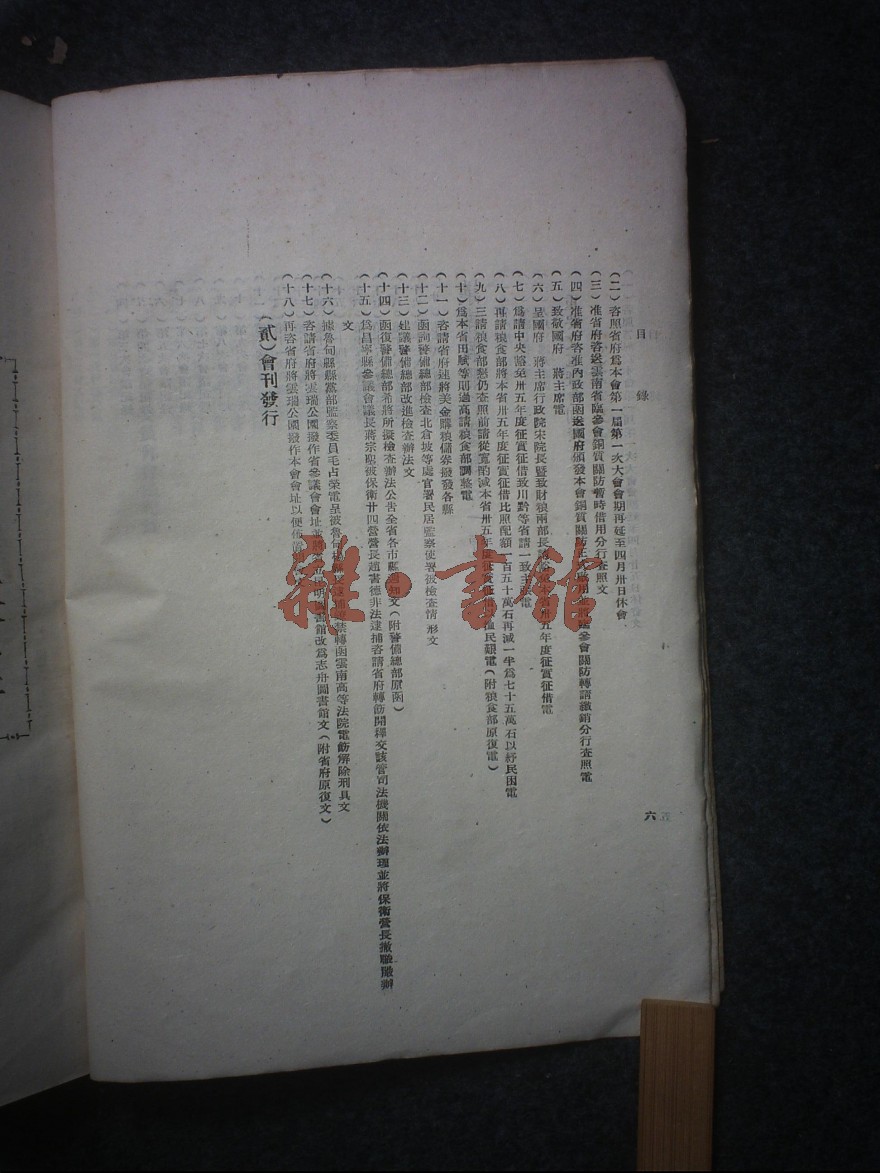 目　錄
六
（二）咨照省府為本會第一屆第一次大會會期再延至四月卅日休會
（三）准省府咨送雲南省臨參會銅質關防暫時借用分行查照文
（四）准省府咨准內政部函送國府頒發本會銅質關防正式啟用並將臨參會關防轉請繳銷分行查照電
（五）致敬國府　蔣主席電
（六）呈國府　蔣主席行政院宋院長暨致財粮兩部長請　本省卅五年度征實征借電
（七）為請中央豁免卅五年度征實征借致川黔等省請一致主張電
（八）再請粮食部將本省卅五年度征實征借比照配額一百五十萬石再減一半為七十五萬石以紓民困電
（九）三請粮食部懇仍查照前請從寬酌減本省卅五年度征實征借以恤民艱電（附粮食部原復電）
（十）為本省田賦等則過高請粮食部調整電
（十一）咨請省府速將美金購粮儲券撥發各縣
（十二）函詢警備總部檢查北倉坡等處官署民居監察使署被檢查情形文
（十三）建議警備總部改進檢查辦法文
（十四）函復警備總部希將所擬檢查辦法公告全省各市縣週知文（附警備總部原函）
（十五）為昌寧縣參議會議長蔣宗熙被保衛廿四營營長趙書德非法逮捕咨請省府轉飭開釋交該管司法機關依法辦理並將保衛營長撤職嚴辦
文
（十六）據魯甸縣縣黨部監察委員毛占榮電呈被魯甸　縣長逮捕　禁轉函雲南高等法院電飭解除刑具文
（十七）咨請省府將雲瑞公園撥作省參議會會址並將　立昆明圖書館改為志舟圖書館文（附省府原復文）
（十八）再咨省府將雲瑞公園撥作本會會址以便佈置
（貳）會刊發行
雜·書館